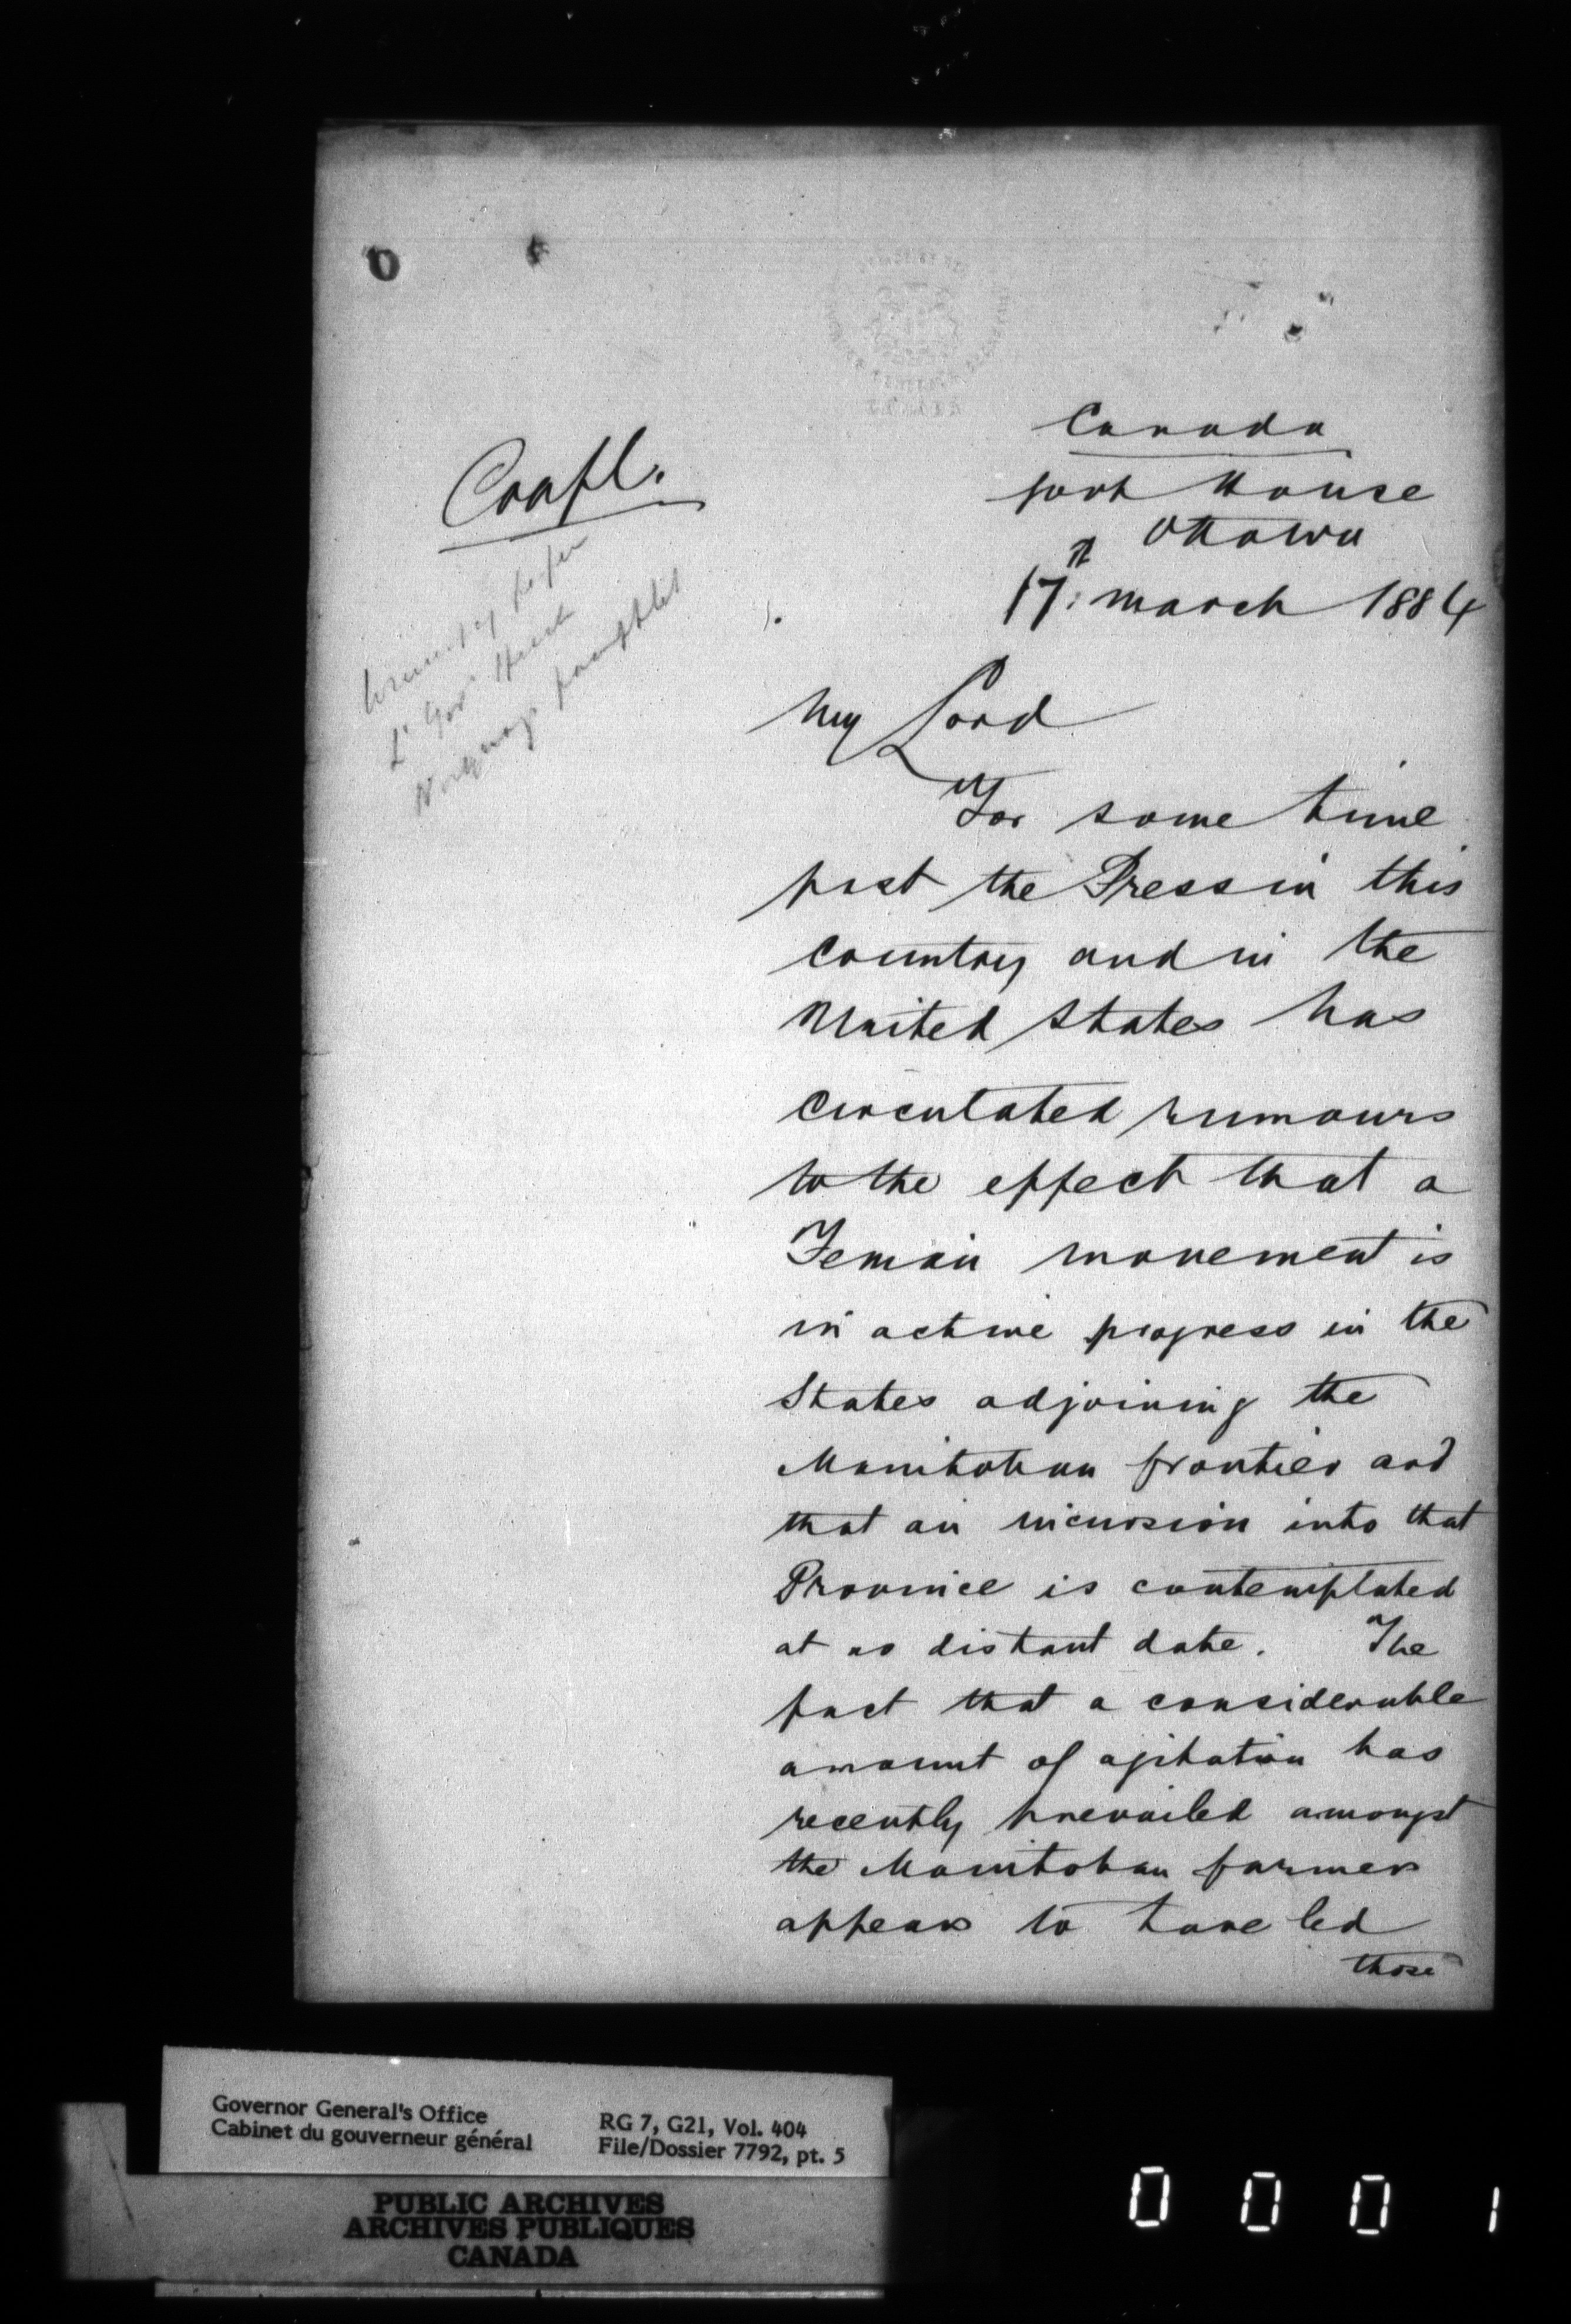 Confl.
Canada
Govt House
Ottawa
17th March 1884
My Lord
For some time
past the Press in this
country and in the
United States has
circulated rumours
to the effect that a
Fenian movement is
in active progress in the
States adjoining the
Manitoban frontier and
that an incursion into that
Province is contemplated
at no distant date. The
fact that a considerable
amount of agitation has
recently prevailed amongst
the Manitoban farmers
appears to have led
those
Lt Govr
Norquay pamphlet
Governor General's Office
Cabinet du gouverneur général
RG 7, G21, Vol. 404
File/Dossier 7792, pt. 5
PUBLIC ARCHIVES
ARCHIVES PUBLIQUES
CANADA
0001